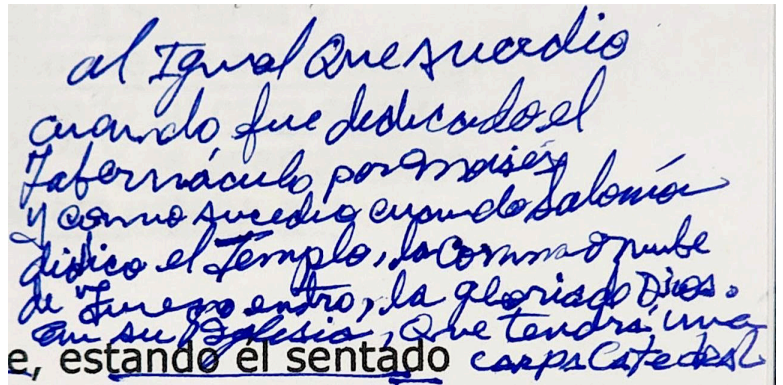 al Igual Que sucedio
cuando fue dedicado el
Tabernáculo por Moisés
y como sucedio cuando Salomón
didico el Templo, la Columna o nube
de Fuego entro, la gloria de Dios.
en su Iglesia, Que tendrá una
e, estando el sentado carpa Catedral